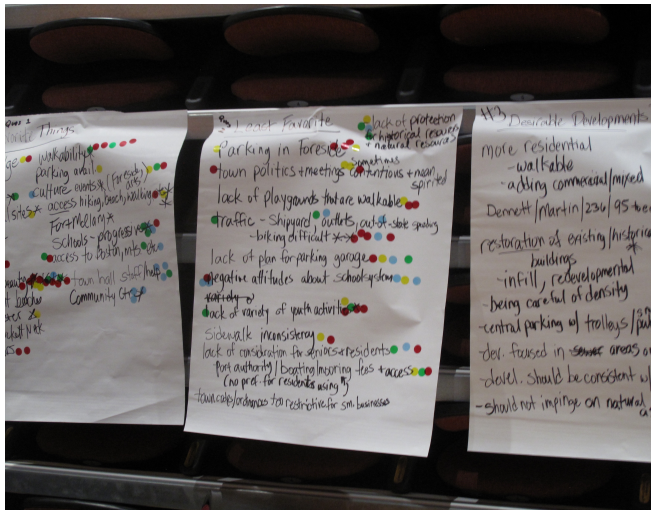 Ques 1
Things
walkability
parking avail.
culture events (Foreside) arts
sites access hiking, beach, walking
Fort McClary
Schools - progressive
access to Boston, mts. etc
town hall staff/hall
Community Ctr
Least Favorite
lack of protection
for historical resources
+ natural resources
Parking in Foreside
sometimes
town politics + meetings contentious + mean
spirited
lack of playgrounds that are walkable
traffic - Shipyard, outlets, out-of-state speeding
- biking difficult
lack of plan for parking garage
negative attitudes about school system
variety o
lack of variety of youth activities
sidewalk inconsistency
lack of consideration for seniors + residents
port authority/boating/mooring fees + access
(no pref. for residents using)
town code/ordinances too restrictive for sm. businesses
#3 Desirable Developments
more residential
- walkable
- adding commercial/mixed
Dennett/Martin/236/95
restoration of existing/historical
buildings
- infill, redevelopmental
- being careful of density
- central parking w/ trolleys/
- dev. focused in sewer areas
- devel. should be consistent w/
- should not impinge on natural